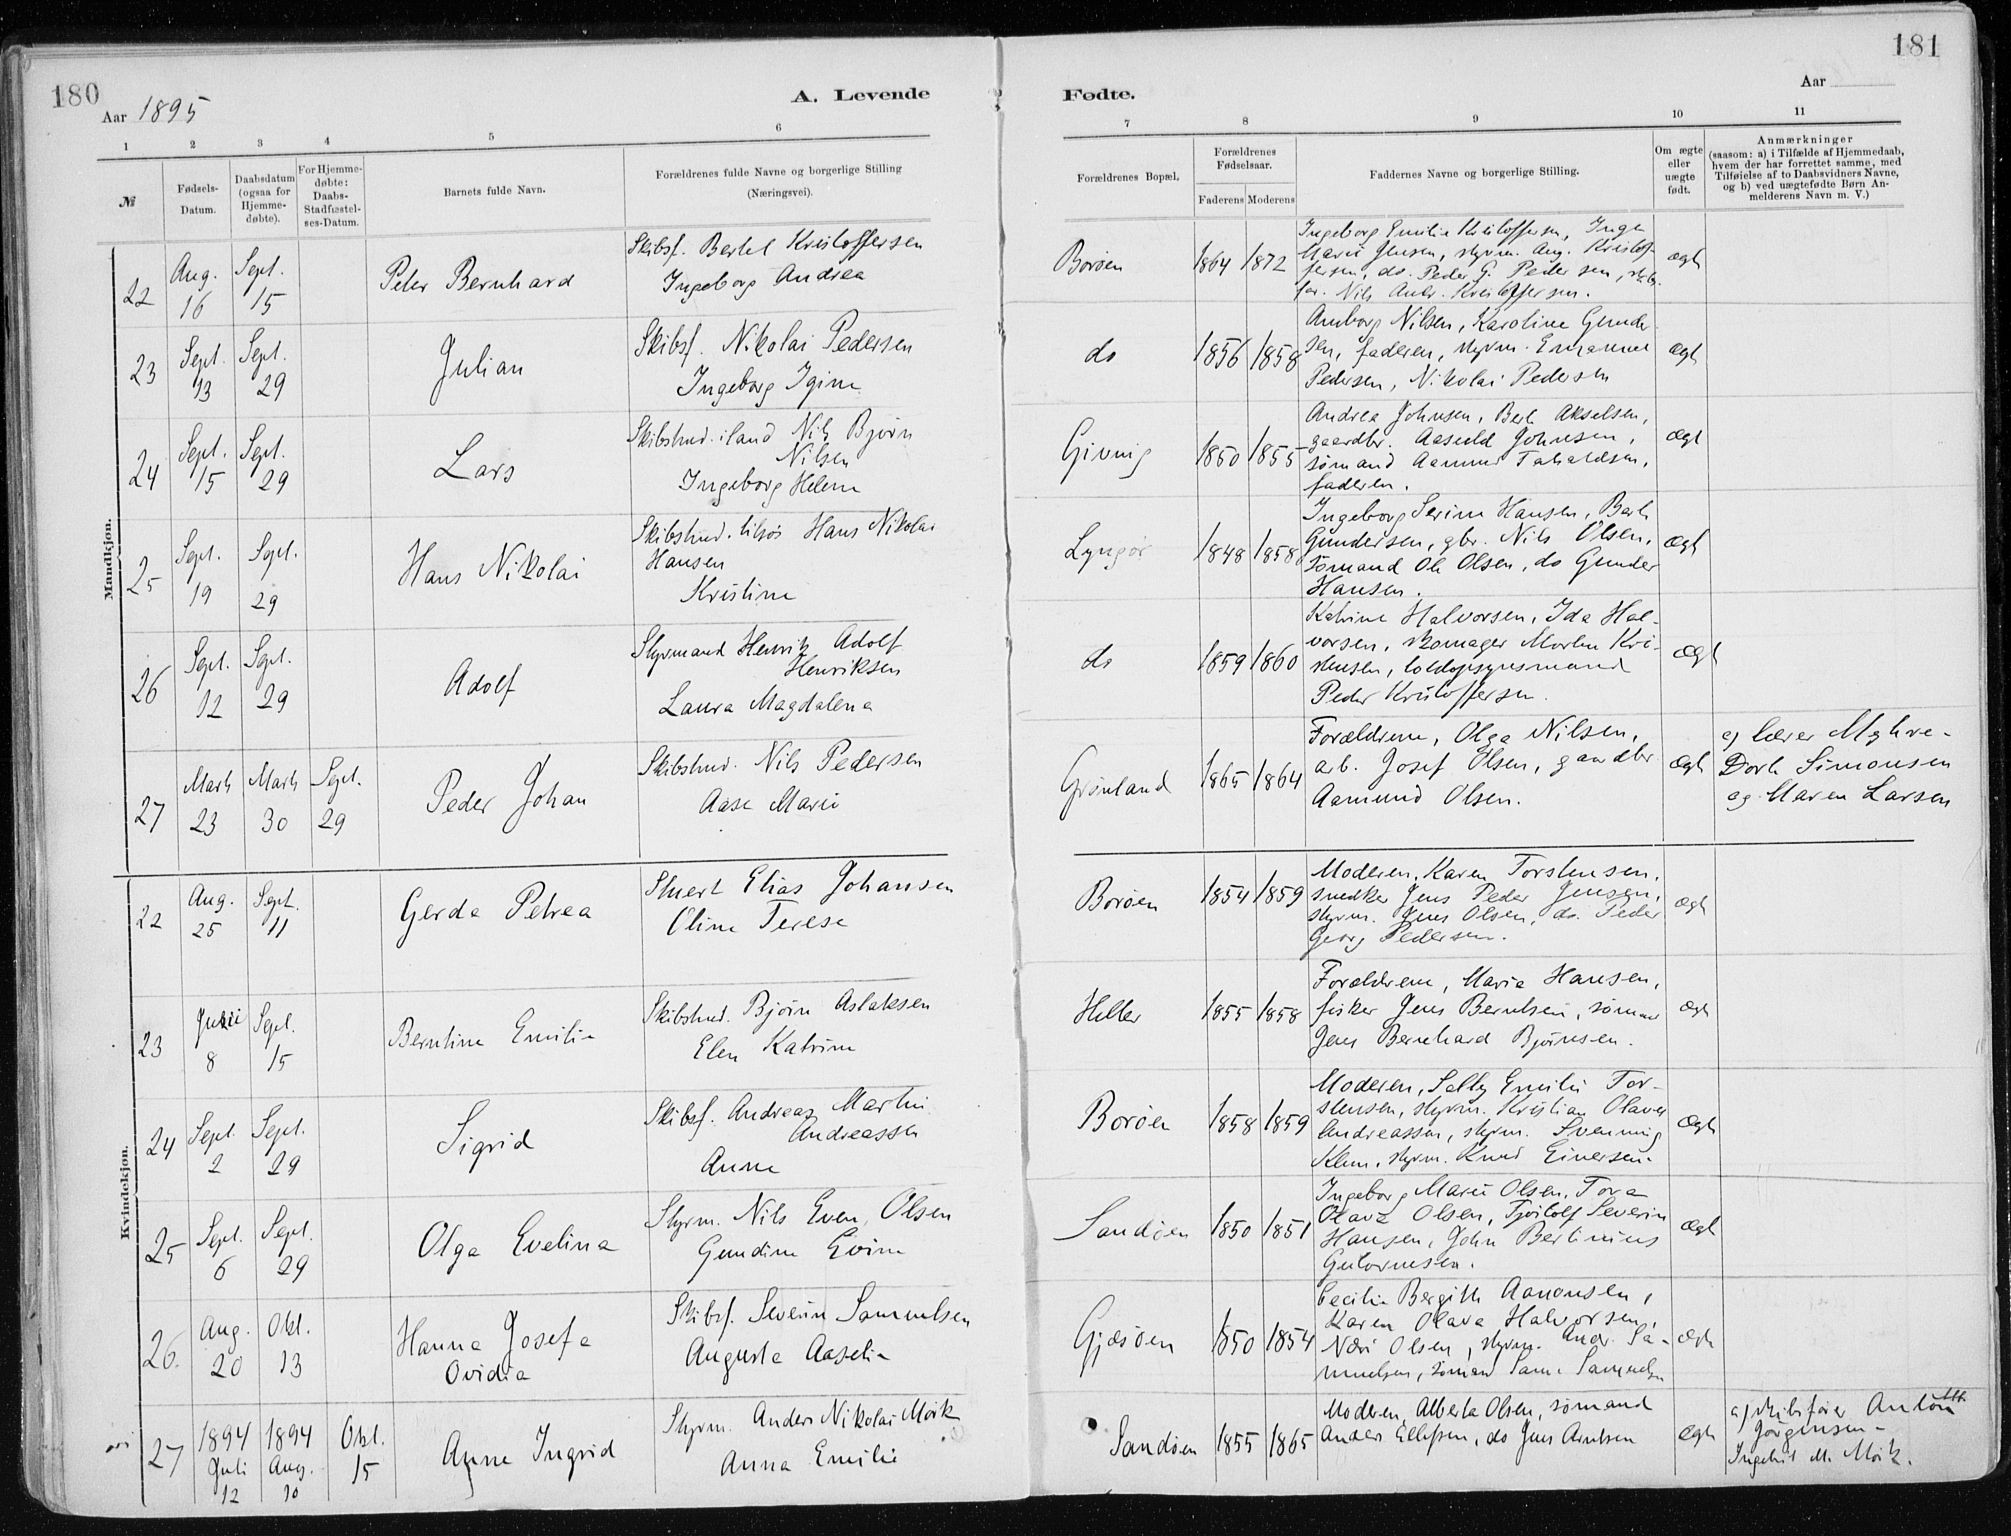 180
181
Aar 1895
A. Levende
Fødte.
Aar
1 2 3 4 5 6
7 8 9 10 11
№
Fødsels-Datum.
Daabsdatum (ogsaa for Hjemmedøbte).
For Hjemmedøbte: Daabs-Stadfæstelses-Datum.
Barnets fulde Navn.
Forældrenes fulde Navne og borgerlige Stilling (Næringsvei).
Forældrenes Bopæl.
Forældrenes Fødselsaar.
Faderens Moderens
Faddernes Navne og borgerlige Stilling.
Om ægte eller uægte født.
Anmærkninger (saasom: a) i Tilfælde af Hjemmedaab, hvem der har forrettet samme, med Tilføielse af to Daabsvidners Navne, og b) ved uægtefødte Børn Anmelderens Navn m. V.)
Mandkjøn.
22 Aug. 16 Sept. 15 Peter Bernhard
Skibsf. Bertel Kristoffersen
Ingeborg Andrea
Borøen 1864 1872
Ingeborg Emilie Kristoffersen, Inga
Marie Jensen, styrm. Aug. Kristof-
fersen, do. Peder G. Pedersen, skibs-
før. Nils Andr. Kristoffersen.
ægt
23 Sept. 13 Sept. 29 Julian
Skibsf. Nikolai Pedersen
Ingeborg Igine
do 1856 1858
Amborg Nilsen, Karoline Gunder-
sen, faderen, styrm. Emanuel
Pedersen, Nikolai Pedersen
ægt
24 Sept. 15 Sept. 29 Lars
Skibstmd. iland Nils Bjørn
Nilsen
Ingeborg Helene
Giving 1850 1855
Andrea Johnsen, Berte Akselsen,
gaardbr. Aasuld Johnsen,
sømand Aamund Taraldsen,
faderen.
ægt
25 Sept. 19 Sept. 29 Hans Nikolai
Skibstmd. tilsjøs Hans Nikolai
Hansen
Kristine
Lyngør 1848 1858
Ingeborg Serine Hansen, Berte
Gundersen, gbr. Nils Olsen,
sømand Ole Olsen, do Gunder
Hansen.
ægt
26 Sept. 12 Sept. 29 Adolf
Styrmand Henrik Adolf
Henriksen
Laura Magdalena
do 1859 1860
Katrine Halvorsen, Ida Hal-
vorsen, skomager Morten Kri-
stensen, toldopsynsmand
Peder Kristoffersen.
ægt
27 Marts 23 Marts 30 Sept. 29 Peder Johan
Skibstmd. Nils Pedersen
Aase Marie
Grønland 1865 1864
Forældrene, Olga Nilsen,
arb. Josef Olsen, gaardbr
Aamund Olsen.
ægt
a) lærer Myhre-
Dorte Simonsen
og Maren Larsen
Kvindekjøn.
22 Aug. 25 Sept. 11 Gerda Petrea
Stuert Elias Johansen
Oline Terese
Borøen 1854 1859
Moderen, Karen Torstensen,
snedker Jens Peder Jensen,
styrm. Jens Olsen, do. Peder
Georg Pedersen.
ægt
23 Juni 8 Sept. 15 Berntine Emilie
Skibstmd. Bjørn Aslaksen
Elen Katrine
Heller 1855 1858
Forældrene, Maria Hansen,
fisker Jens Berntsen, sømand
Jens Bernhard Bjørnsen.
ægt
24 Sept. 2 Sept. 29 Sigrid
Skibsf. Andreas Martin
Andreassen
Anne
Borøen 1858 1859
Moderen, Selly Emilie Tor-
stensen, styrm. Kristian Olaves
Andreassen, styrm. Svenning
Klem, styrm. Knud Einersen.
ægt
25 Sept. 6 Sept. 29 Olga Evelina
Styrm. Nils Even Olsen
Gundine Evine
Sandøen 1850 1851
Ingeborg Marie Olsen, Tora
Olava Olsen, Tjøstolf Severin
Hansen, John Bertinius
Gutormsen.
ægt
26. Aug. 20 Okt. 13 Hanna Josefa
Ovidia
Skibsf. Severin Samuelsen
Augusta Aaselie
Gjæsøen 1850 1854
Cecilie Bergitte Aanonsen,
Karen Olava Halvorsen,
Næri Olsen, styrm. Andr. Sa-
muelsen, sømand Sam. Samuelsen
ægt
27 1894 Juli 12 1894 Aug. 10 Okt. 15 Anne Ingrid
Styrm. Anders Nikolai Mørk
Anna Emilie
Sandøen 1855 1865
Moderen, Alberta Olsen, sømand
Anders Ellefsen, do Jens Arntsen
ægt
a) skibsfører Anton
Jørgensen-
Ingebret M. Mørk.